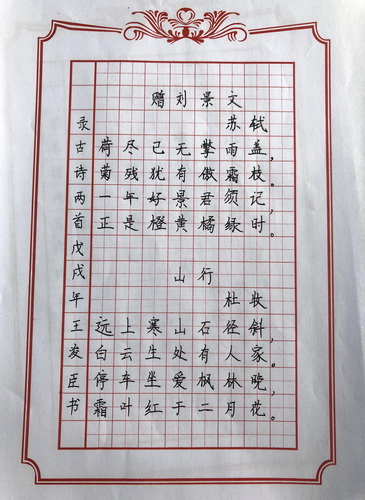 赠刘景文
苏轼
荷尽已无擎雨盖,
菊残犹有傲霜枝。
一年好景君须记,
正是橙黄橘绿时。
山行
杜牧
远上寒山石径斜,
白云生处有人家。
停车坐爱枫林晚,
霜叶红于二月花。
录古诗两首戊戌年王臣书